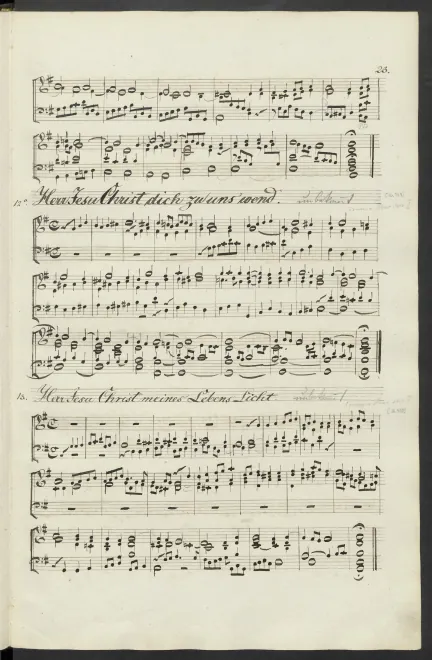 25.
12.
Herr Jesu Christ dich zu uns wend.
13.
Herr Jesu Christ meines Lebens Licht